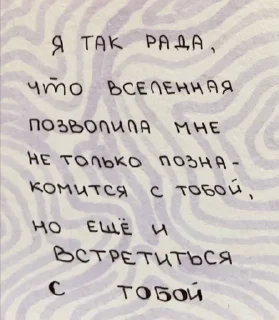 Я ТАК РАДА,
ЧТО ВСЕЛЕННАЯ
ПОЗВОЛИЛА МНЕ
НЕ ТОЛЬКО ПОЗНА-
КОМИТСЯ С ТОБОЙ,
НО ЕЩЁ И
ВСТРЕТИТЬСЯ
С ТОБОЙ